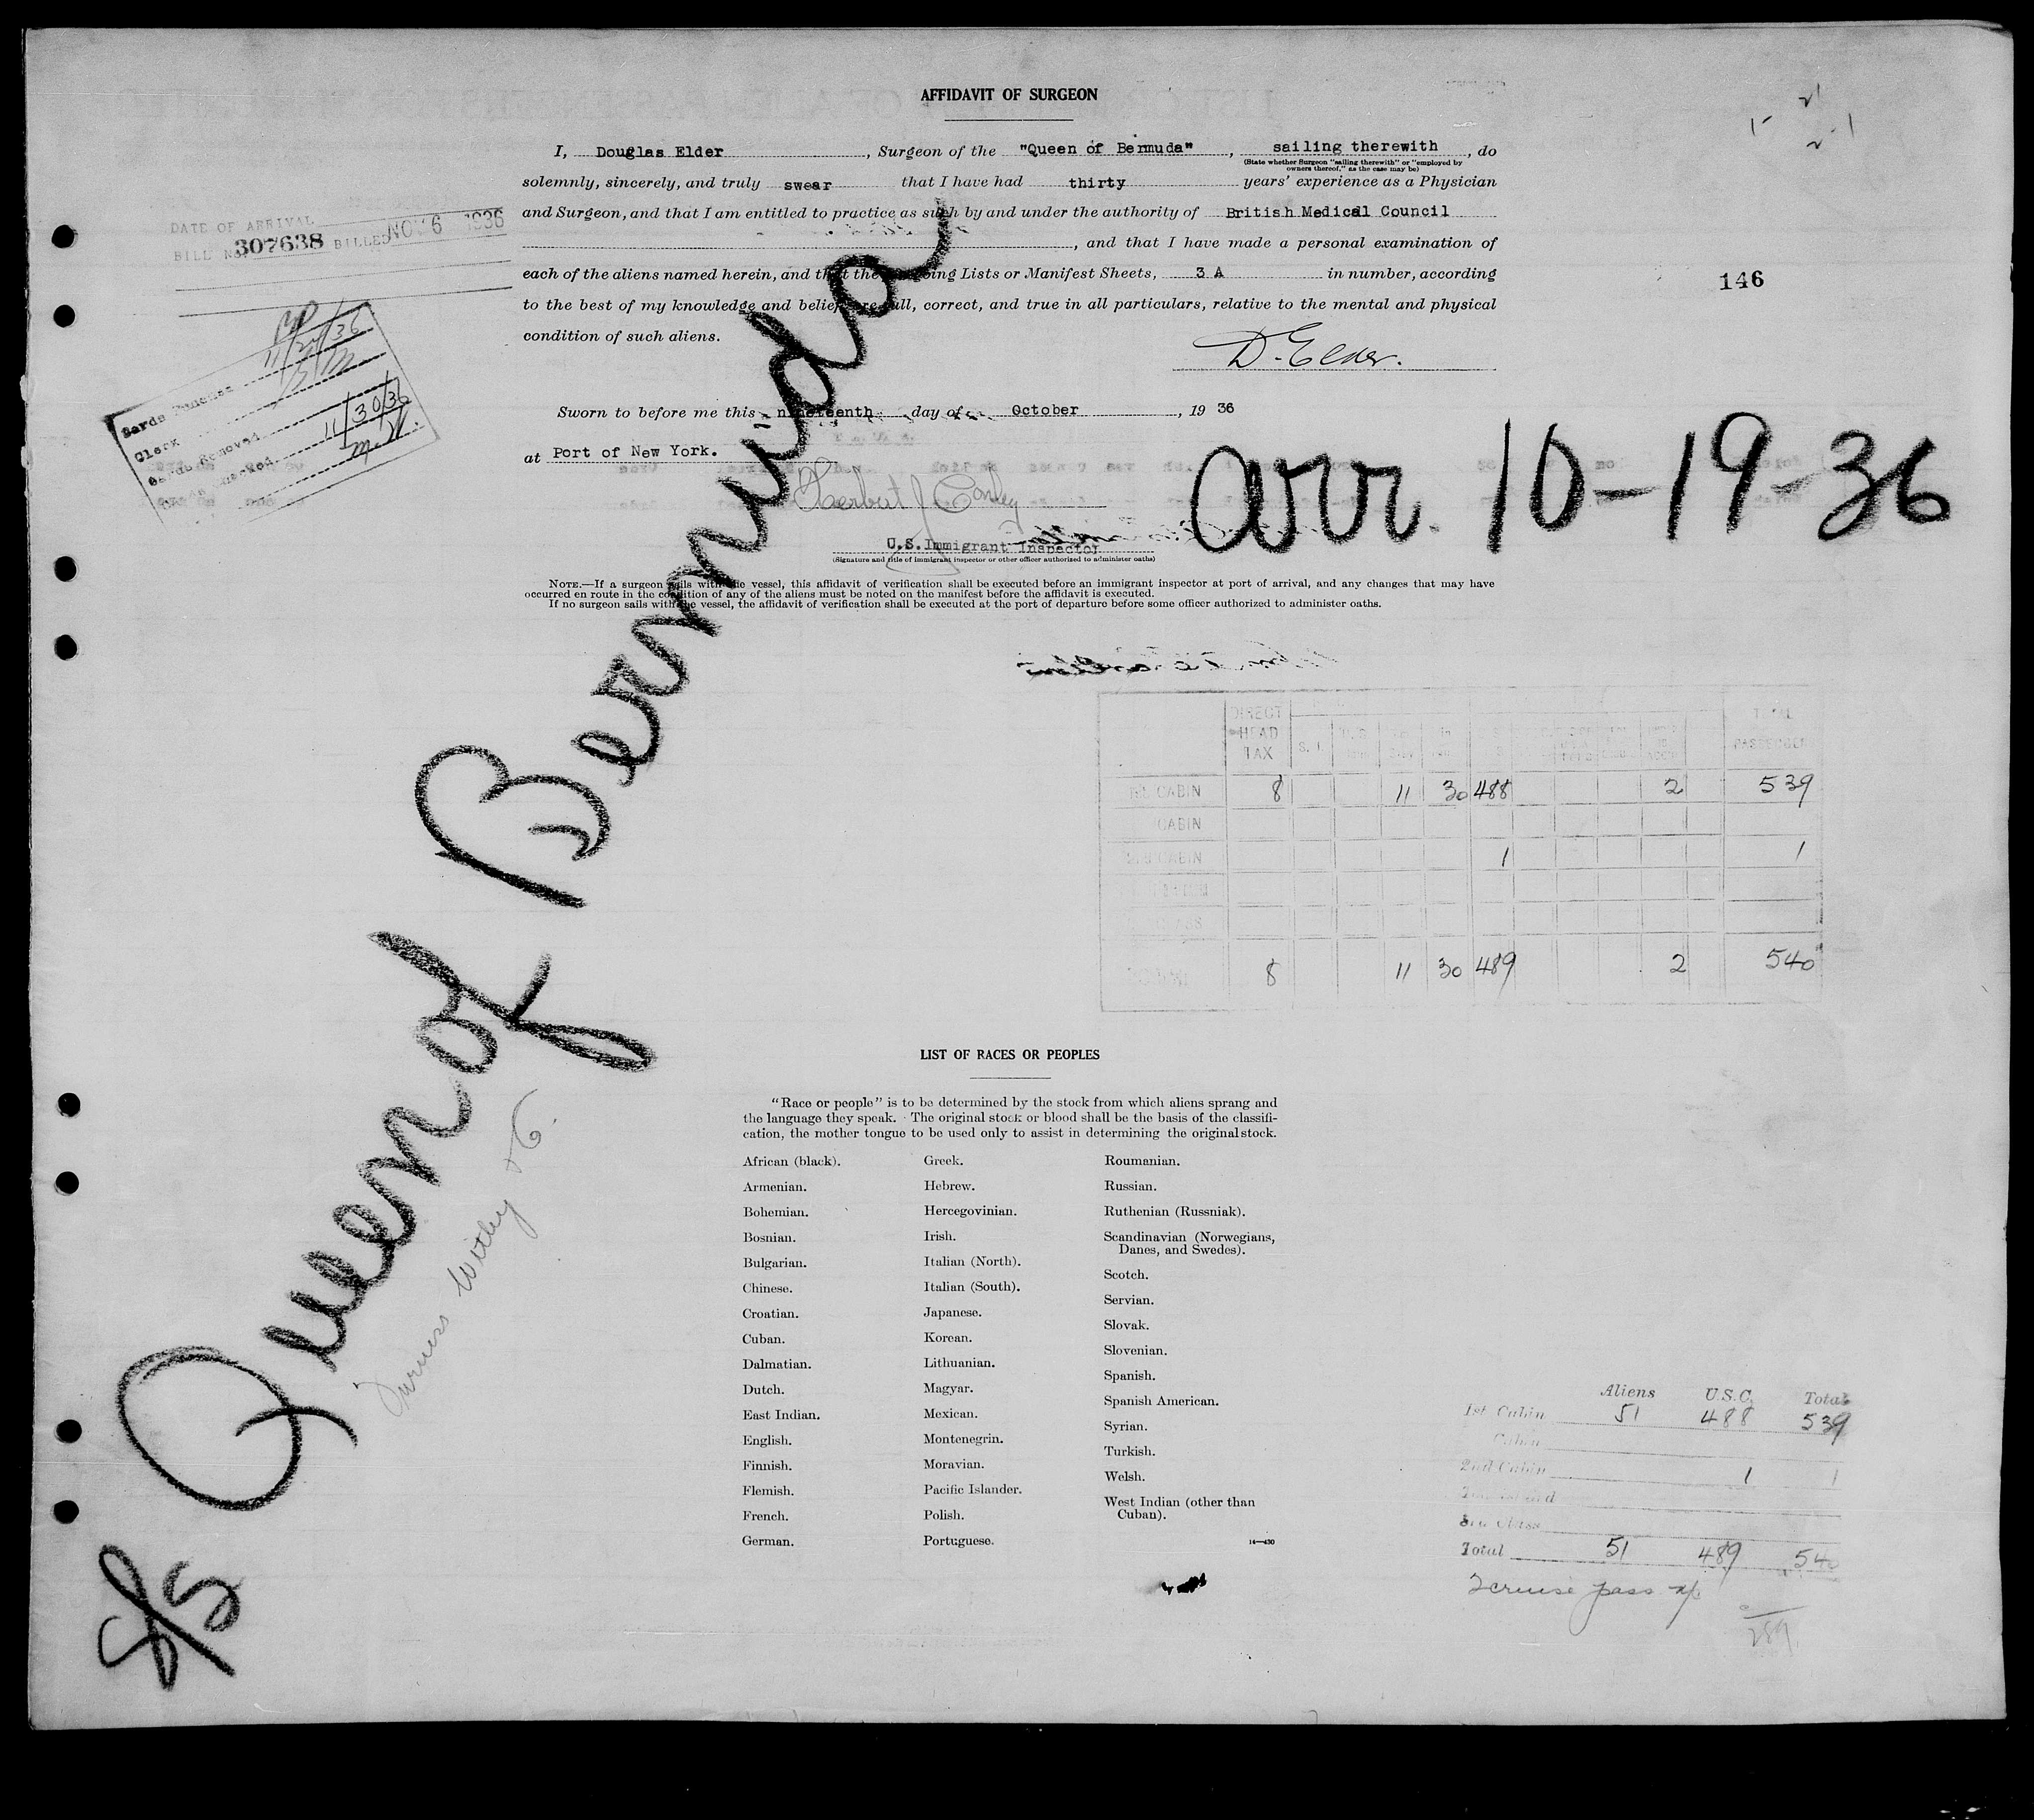 AFFIDAVIT OF SURGEON
I, Douglas Elder, Surgeon of the "Queen of Bermuda", sailing therewith, do
(State whether Surgeon "sailing therewith" or "employed by
owners thereof," as the case may be)
solemnly, sincerely, and truly swear that I have had thirty years' experience as a Physician
and Surgeon, and that I am entitled to practice as such by and under the authority of British Medical Council
, and that I have made a personal examination of
each of the aliens named herein, and that the Lists or Manifest Sheets, 3 A in number, according
to the best of my knowledge and belief, are full, correct, and true in all particulars, relative to the mental and physical
condition of such aliens.
D. Elder.
Sworn to before me this nineteenth day of October, 19 36
at Port of New York.
Herbert J Conley
U.S. Immigrant Inspector
(Signature and title of immigrant inspector or other officer authorized to administer oaths)
NOTE.—If a surgeon sails with the vessel, this affidavit of verification shall be executed before an immigrant inspector at port of arrival, and any changes that may have
occurred en route in the condition of any of the aliens must be noted on the manifest before the affidavit is executed.
If no surgeon sails with the vessel, the affidavit of verification shall be executed at the port of departure before some officer authorized to administer oaths.
DATE OF ARRIVAL
BILL No. 307638 BILLED NOV 6 1936
11/30/36
146
arr. 10-19-36
S/S Queen of Bermuda
Furness Withy
DIRECT HEAD TAX TOTAL PASSENGER
1st CABIN 8 11 30 488 2 539
CABIN
2nd CABIN 1 1
CLASS
TOTAL 8 11 30 489 2 540
LIST OF RACES OR PEOPLES
"Race or people" is to be determined by the stock from which aliens sprang and
the language they speak. The original stock or blood shall be the basis of the classifi-
cation, the mother tongue to be used only to assist in determining the original stock.
African (black).
Armenian.
Bohemian.
Bosnian.
Bulgarian.
Chinese.
Croatian.
Cuban.
Dalmatian.
Dutch.
East Indian.
English.
Finnish.
Flemish.
French.
German.
Greek.
Hebrew.
Hercegovinian.
Irish.
Italian (North).
Italian (South).
Japanese.
Korean.
Lithuanian.
Magyar.
Mexican.
Montenegrin.
Moravian.
Pacific Islander.
Polish.
Portuguese.
Roumanian.
Russian.
Ruthenian (Russniak).
Scandinavian (Norwegians,
Danes, and Swedes).
Scotch.
Servian.
Slovak.
Slovenian.
Spanish.
Spanish American.
Syrian.
Turkish.
Welsh.
West Indian (other than
Cuban).
14—430
Aliens U.S.C. Total
1st Cabin 51 488 539
Cabin
2nd Cabin 1 1
3rd Class
Total 51 489 540
2 cruise pass